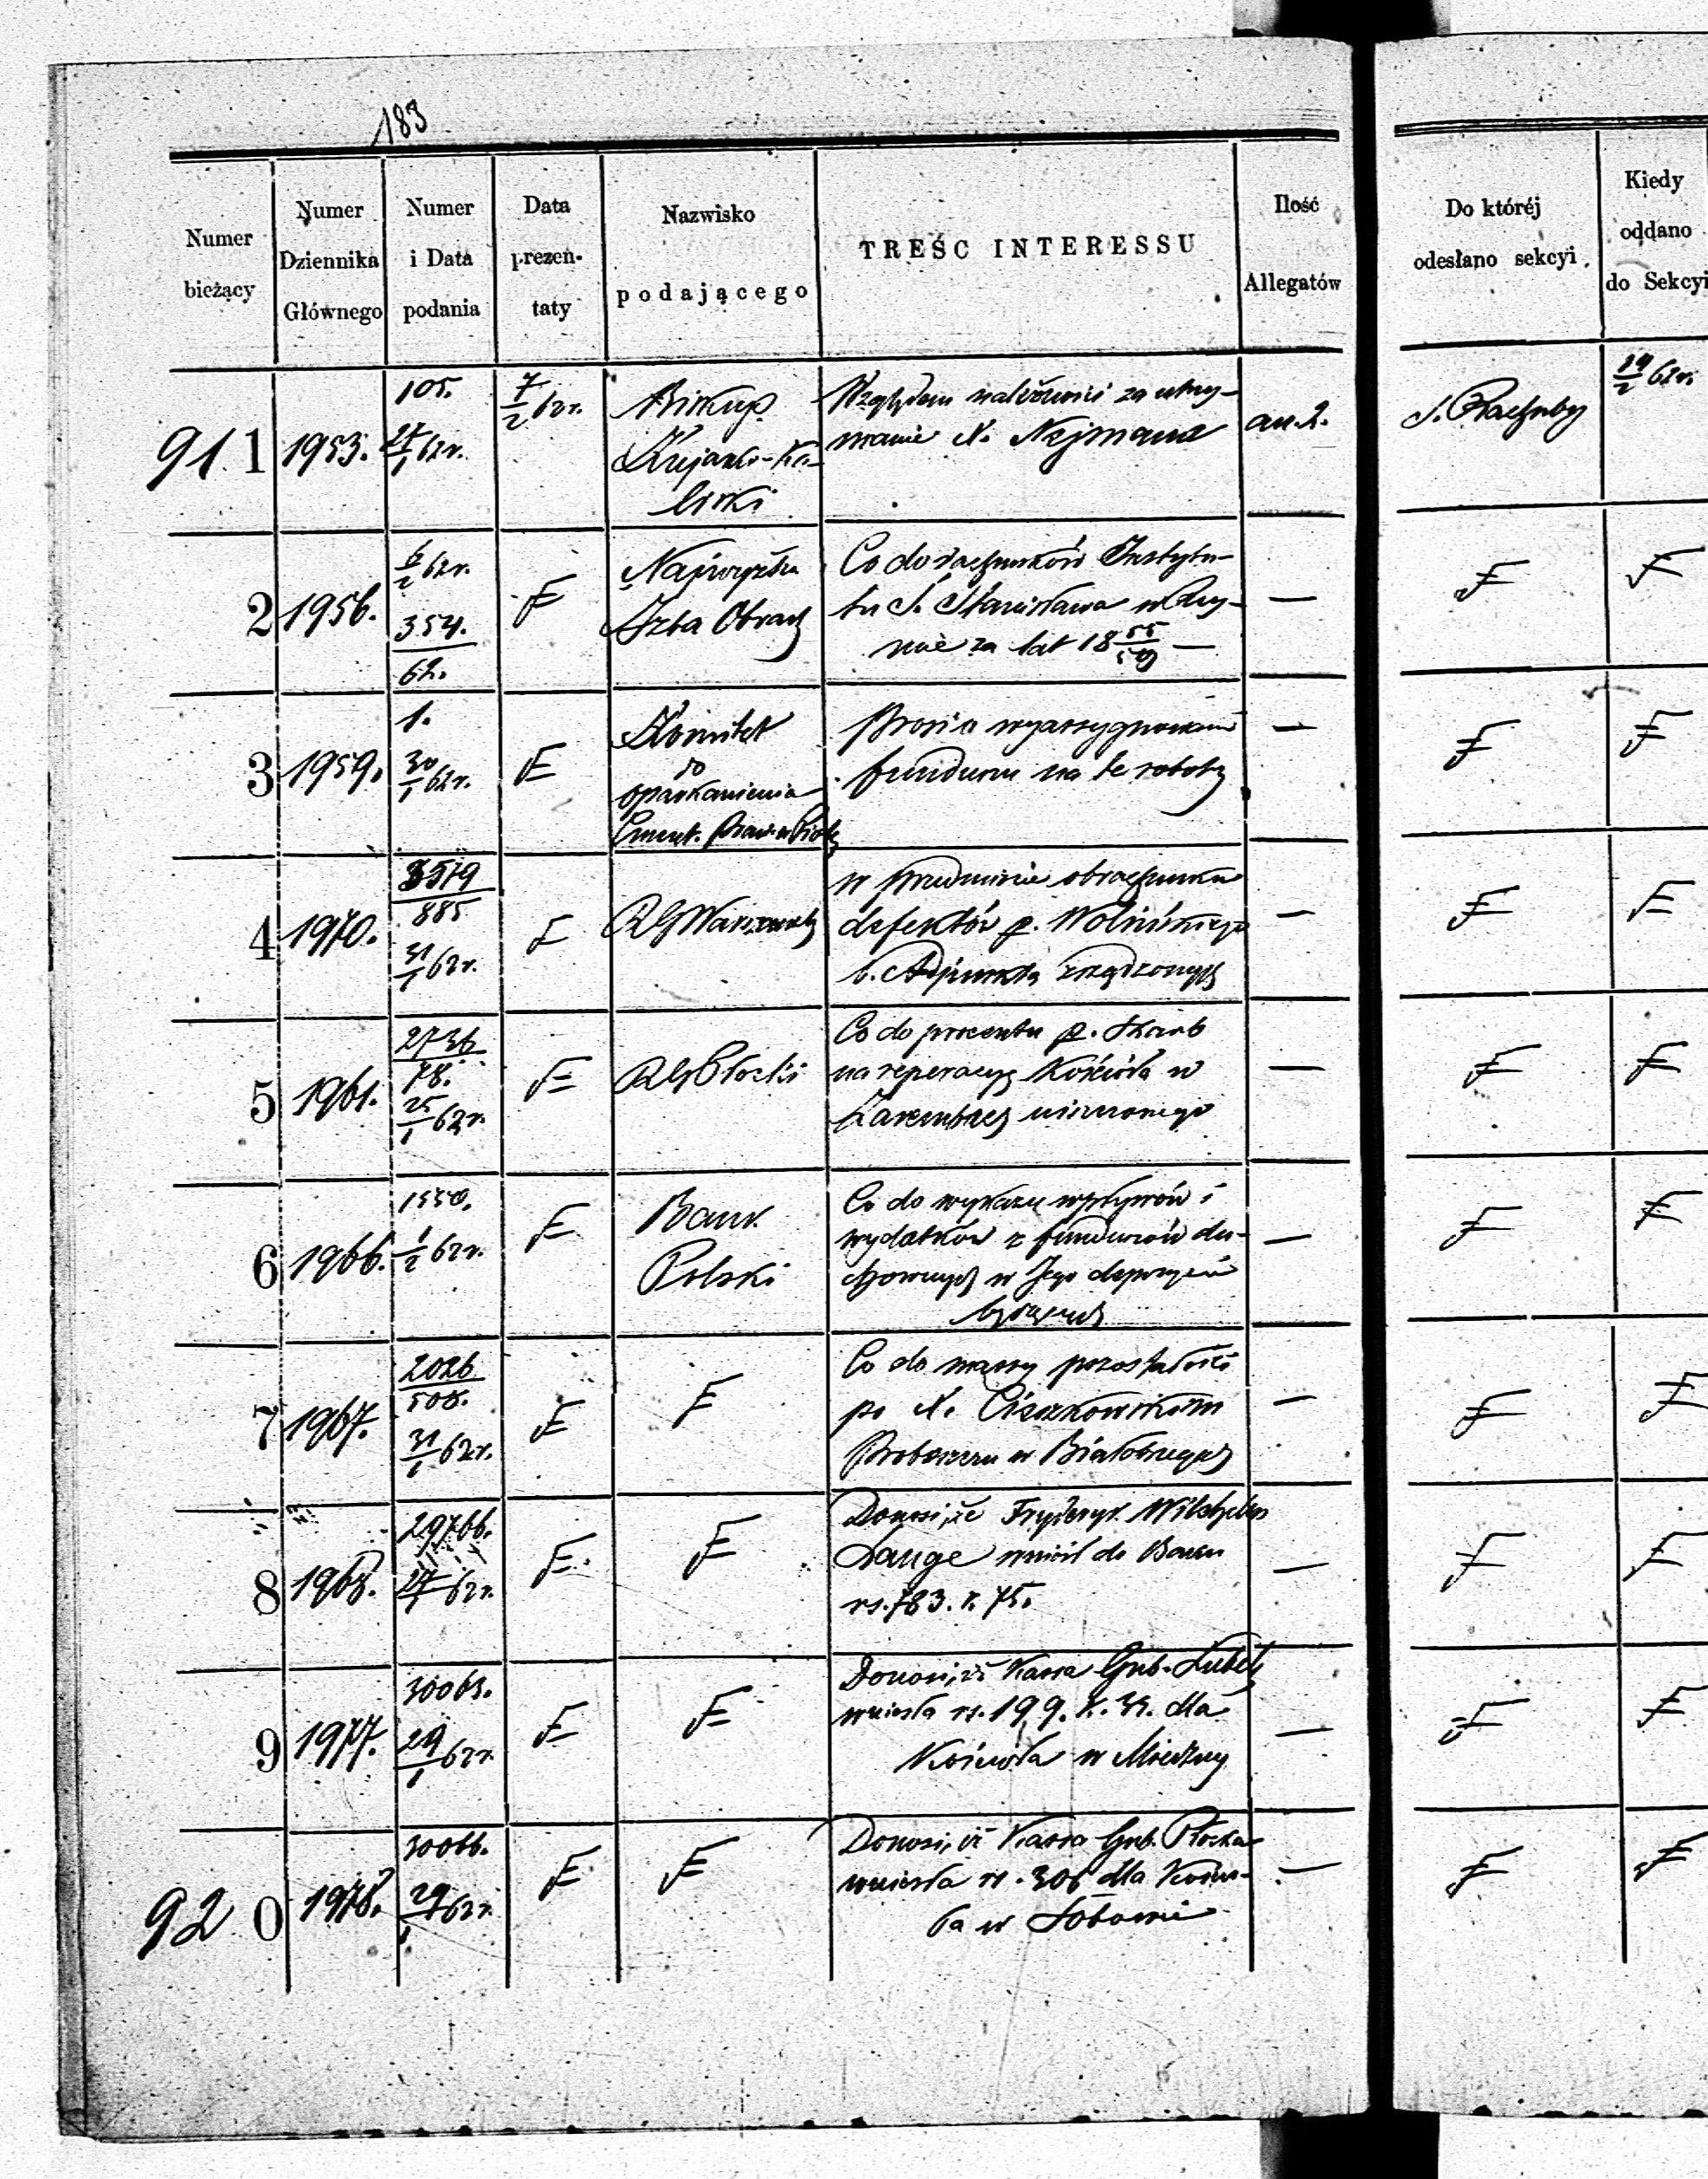 183
Numer bieżący
Numer Dziennika Głównego
Numer i Data podania
Data prezen- taty
Nazwisko podającego
TREŚC INTERESSU
Ilość Allegatów
Do któréj odesłano sekcyi
Kiedy oddano do Sekcyi
911
1953.
105.
62r.
7/2 62r.
Biskup
Kujawsko-Ka-
liski
Względem należności za utrzy-
manie X. Nejmana
an. 2.
S. Rachuby
62r.
2
1956.
6/2 62r.
354.
62.
F
Najwyższa
Izba Obrach
Co do rachunków Instytu-
tu S. Stanisława w Rzy-
mie za lat 18 55/59 —
—
F
F
3
1959.
1.
30/1 62r.
F
Komitet
do
oparkanienia
Cment. Praw. w
Prosi o wyassygnowanie
funduszu na te roboty
—
F
F
4
1970.
3579
885
31/1 62r.
F
RG Warszawski
w przedmiocie obrachunku
defektów p.
b. Adjunkta zrządzonych
—
F
F
5
1961.
2736
78.
25/1 62r.
F
RG Płocki
Co do procentu p. Skarb
na reperacyę Kościoła w
Zarembach uiszczonego
—
F
F
6
1966.
1550.
1/2 62r.
F
Bank
Polski
Co do wykazu wpływów i
wydatków z funduszów du-
chownych w Jego depozycie
będących
—
F
F
7
1967.
2026
508.
31/1 62r.
F
F
Co do massy pozostałości
po X. Ciszkowskim
Proboszczu w Białobrzegach
—
F
F
8
1968.
29766.
27/1 62r.
F
F
Donosi, że Fryderyk Wilhelm
Lange wniósł do Banku
rs. 783. k. 75.
—
F
F
9
1977.
30063.
29/1 62r.
F
F
Donosi, iż Kassa Gub. Lubel.
wniosła rs. 199. k. 33. dla
Kościoła w Miedzny
—
F
F
920
1978.
30066.
29/1 62r.
F
F
Donosi, iż Kassa Gub. Płocka
wniosła rs. 306 dla Kościo-
ła w
—
F
F